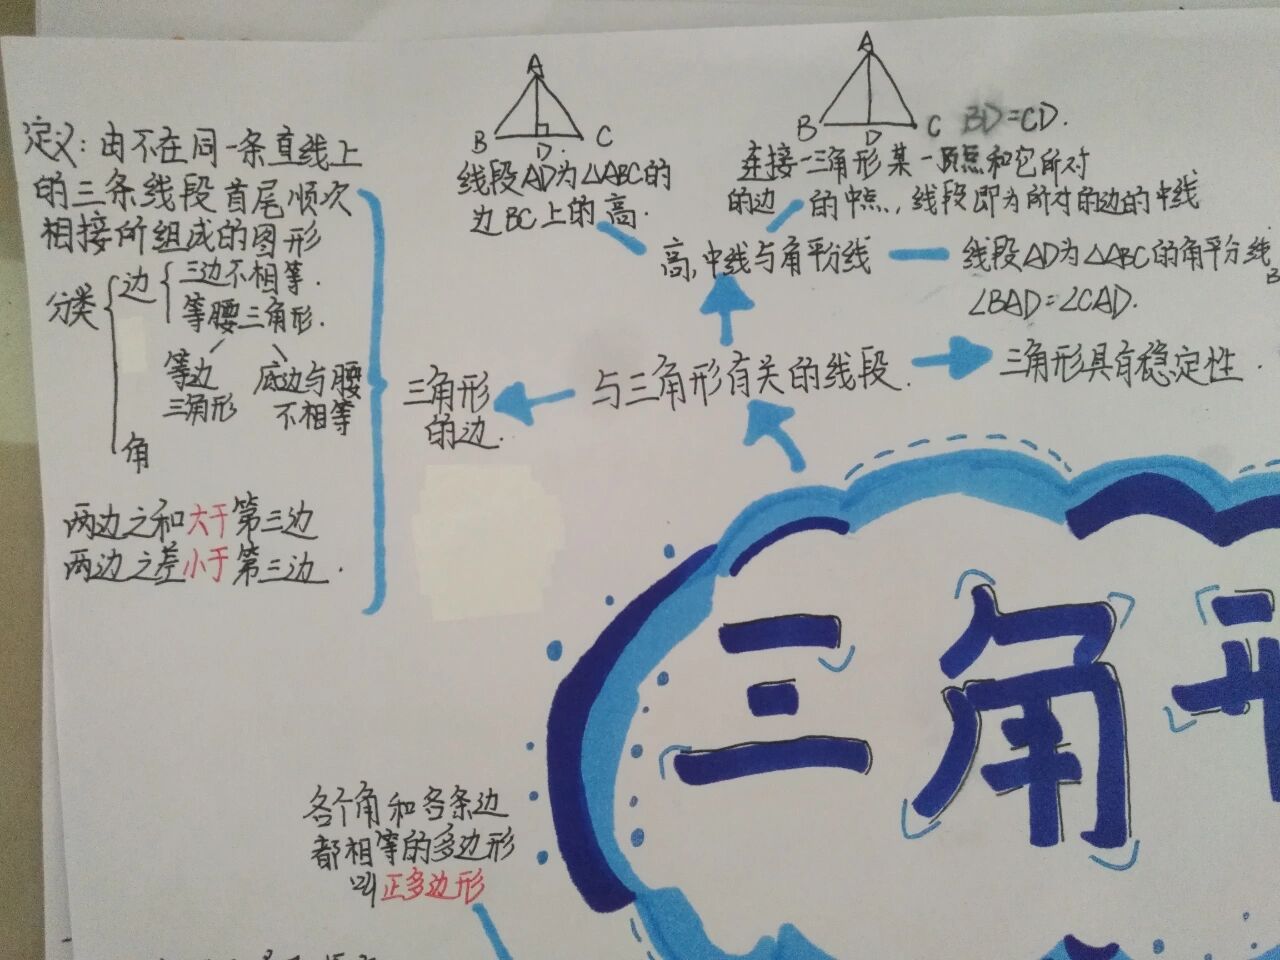 A
B
D
C
线段AD为△ABC的
边BC上的高.
A
B
D
C
BD=CD.
连接一三角形某一顶点和它所对
的边 的中点,线段即为所对的边的中线
定义:由不在同一条直线上
的三条线段首尾顺次
相接所组成的图形
分类
边
三边不相等.
等腰三角形.
等边
三角形
底边与腰
不相等
角
两边之和大于第三边
两边之差小于第三边.
高,中线与角平分线
线段AD为△ABC的角平分线
∠BAD=∠CAD.
B
三角形
的边.
与三角形有关的线段.
三角形具有稳定性.
三角
各个角和各条边
都相等的多边形
叫正多边形